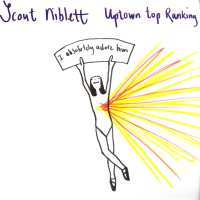 Scout Niblett Uptown Top Ranking
I absolutely adore him